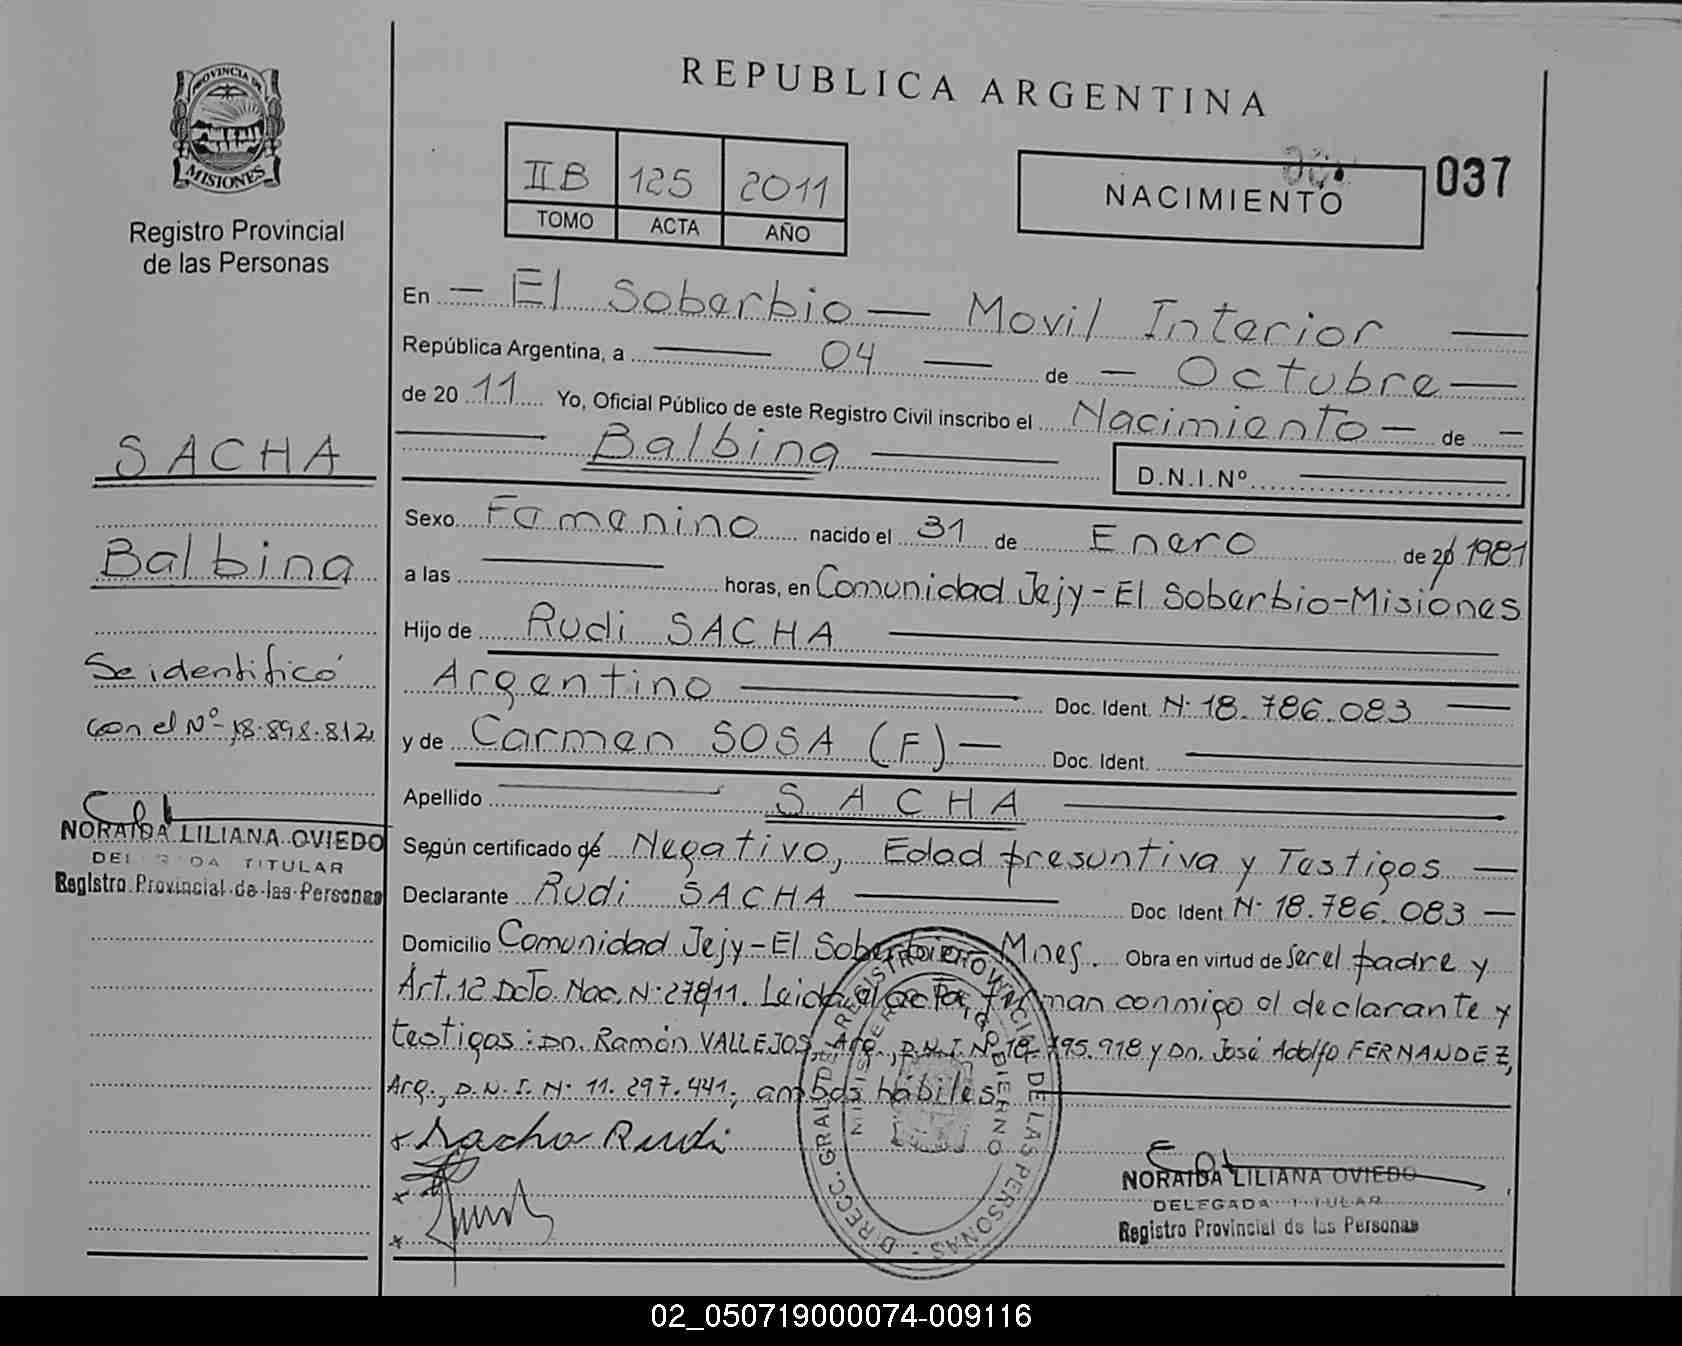 PROVINCIA DE
MISIONES
Registro Provincial
de las Personas
SACHA
Balbina
Se identificó
con el Nº 18.898.812
NORAIDA LILIANA OVIEDO
DELEGADA TITULAR
Registro Provincial de las Personas
REPUBLICA ARGENTINA
II B 125 2011
TOMO ACTA AÑO
NACIMIENTO
037
En — El Soberbio — Movil Interior —
República Argentina, a — 04 — de — Octubre —
de 20 11 Yo, Oficial Público de este Registro Civil inscribo el Nacimiento — de —
Balbina — D.N.I.Nº —
Sexo Femenino nacido el 31 de Enero de 20 1981
a las — horas, en Comunidad Jejy - El Soberbio - Misiones
Hijo de Rudi SACHA —
Argentino — Doc. Ident. Nº 18.786.083 —
y de Carmen SOSA (F) — Doc. Ident. —
Apellido — SACHA —
Según certificado de Negativo, Edad presuntiva y Testigos —
Declarante Rudi SACHA — Doc. Ident Nº 18.786.083 —
Domicilio Comunidad Jejy - El Soberbio - Mnes. Obra en virtud de ser el padre y
Art. 12 Dcto. Nac. Nº 278/11. Leida el acta, firman conmigo el declarante y
testigos: Dn. Ramón VALLEJOS, Arg., D.N.I. Nº 18.795.918 y Dn. José Adolfo FERNANDEZ,
Arg., D.N.I. Nº 11.297.441, ambos hábiles. —
x Sacha Rudi
x
x
DIRECC. GRAL. DEL REGISTRO PROVINCIAL DE LAS PERSONAS
MINISTERIO DE GOBIERNO
NORAIDA LILIANA OVIEDO
DELEGADA TITULAR
Registro Provincial de las Personas
02_050719000074-009116